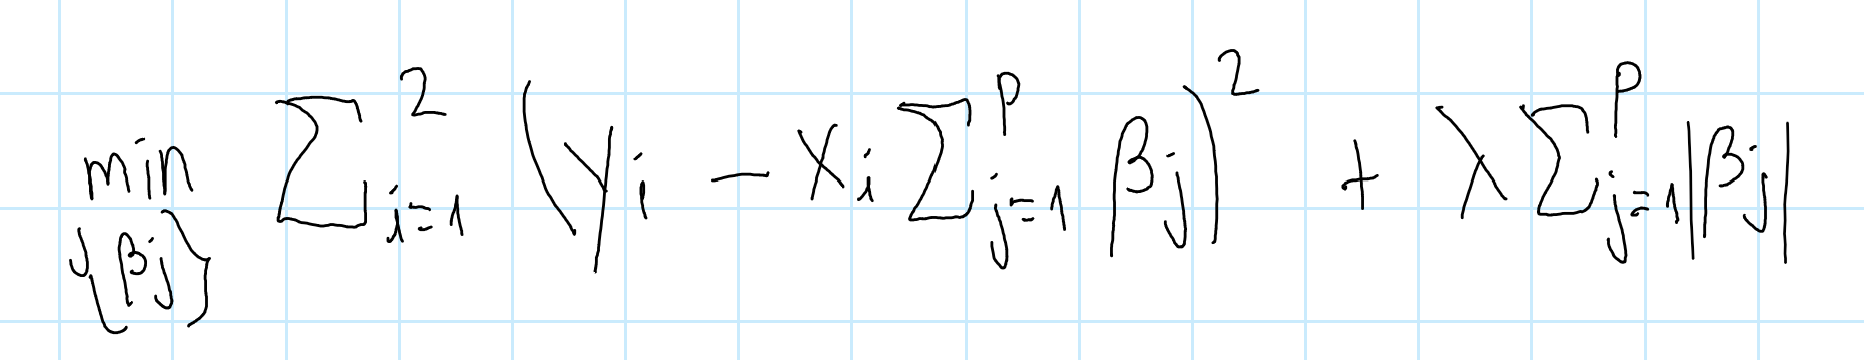 min_{\{β_j\}} ∑_{i=1}^{2} (y_i − x_i ∑_{j=1}^{p} β_j)^2 + λ ∑_{j=1}^{p} |β_j|